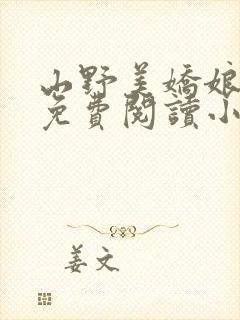 山野美嬌娘
免費閱讀小
姜文